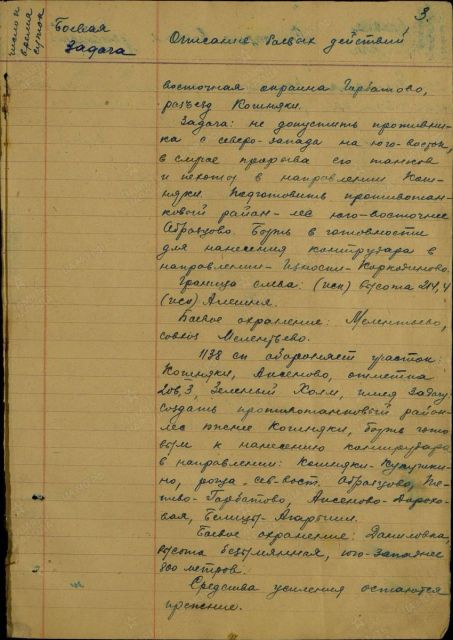 3.
число и
время
суток
Боевая
Задача
Описание боевых действий
восточная окраина Гарбатово,
разъезд Кошняки.
Задача: не допустить противни-
ка с северо-запада на юго-восток,
в случае прорыва его танков
и пехоты в направлении Кош-
няки. Подготовить противотан-
ковый район - лес юго-восточнее
Образцово. Быть в готовности
для нанесения контрудара в
направлении
Граница слева: (иск) высота 214,4
(иск) Алешня.
Боевое охранение: Мелентьево,
совхоз Мелентьево.
1138 сп обороняет участок:
Кошняки, Аксеново, отметка
208,3, Зеленый Холм, имея задачу:
создать противотанковый район -
лес южнее Кошняки, быть гото
вым к нанесению контрудара
в направлении: Кошняки -
но, роща сев-вост. Образцово,
Гарбатово, Аксеново -
Боевое охранение: Даниловка,
высота безымянная, юго-западнее
800 метров.
Средства усиления остаются
прежние.